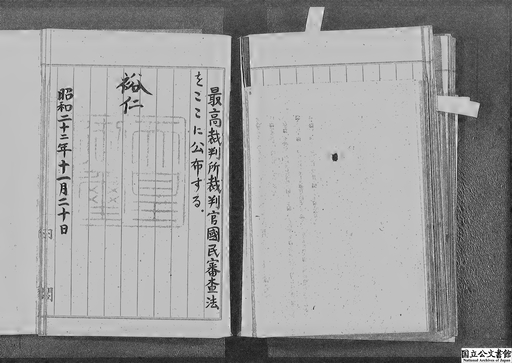 最高裁判所裁判官國民審査法
をここに公布する。
裕仁
昭和二十二年十一月二十日
国立公文書館
National Archives of Japan